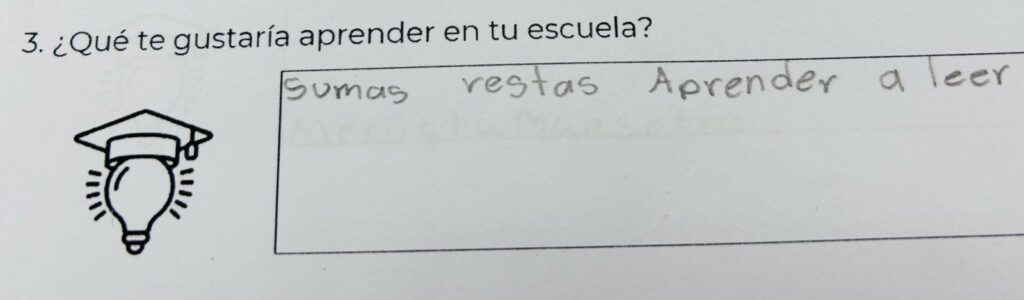 3. ¿Qué te gustaría aprender en tu escuela?
Sumas restas Aprender a leer